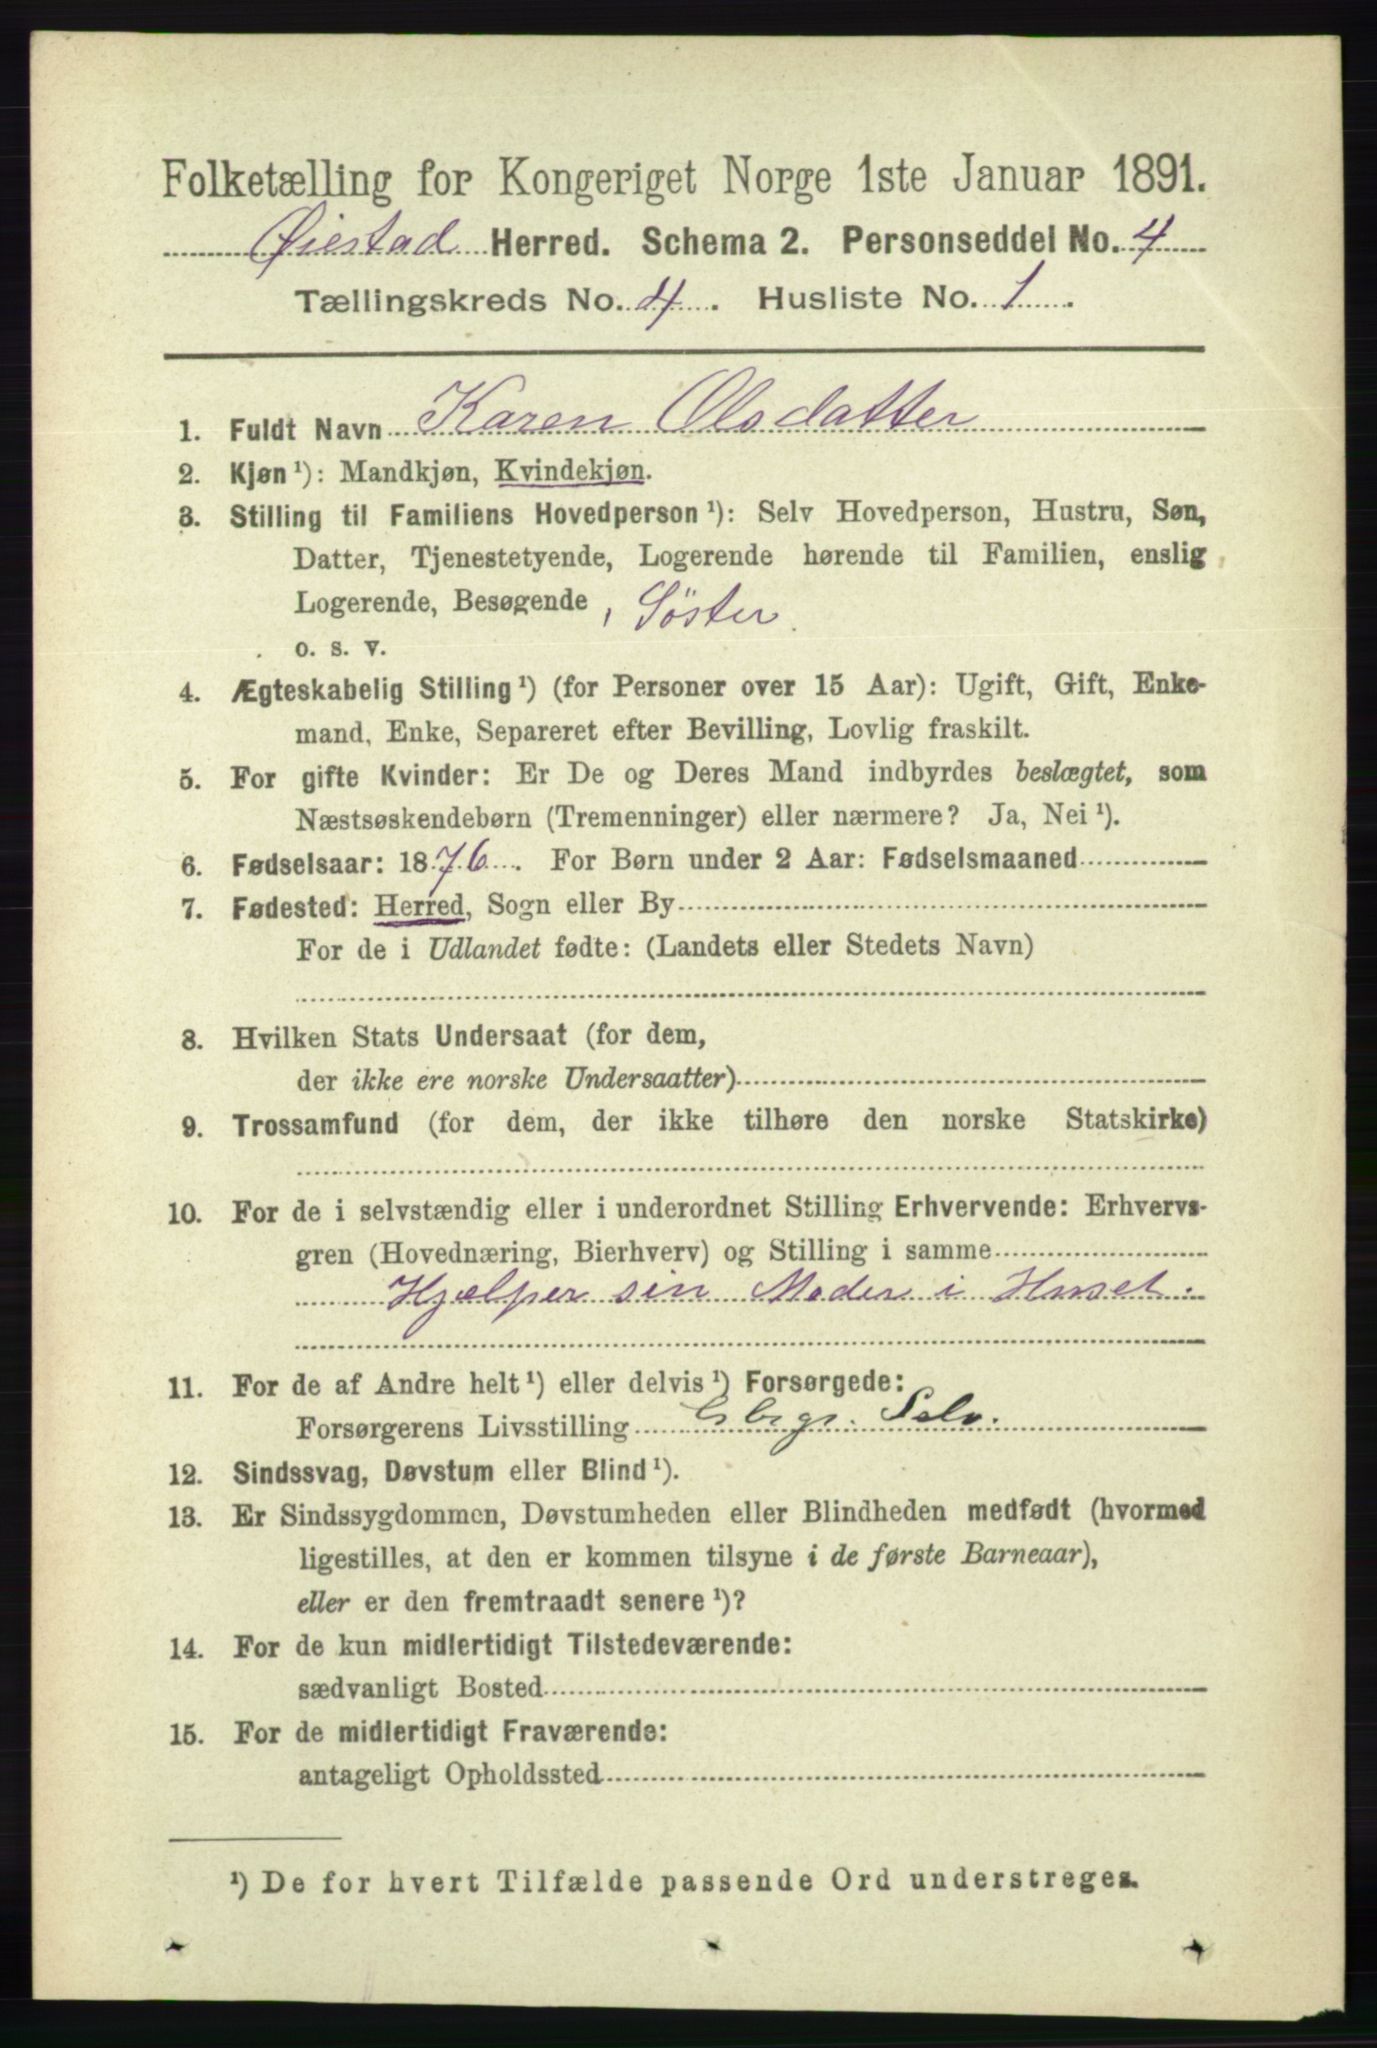 Folketælling for Kongeriget Norge 1ste Januar 1891.
Øiestad Herred. Schema 2. Personseddel No. 4
Tællingskreds No. 4. Husliste No. 1.
1. Fuldt Navn Karen Olsdatter
2. Kjøn ¹): Mandkjøn, Kvindekjøn.
3. Stilling til Familiens Hovedperson ¹): Selv Hovedperson, Hustru, Søn,
Datter, Tjenestetyende, Logerende hørende til Familien, enslig
Logerende, Besøgende , Söster.
o. s. v.
4. Ægteskabelig Stilling ¹) (for Personer over 15 Aar): Ugift, Gift, Enke-
mand, Enke, Separeret efter Bevilling, Lovlig fraskilt.
5. For gifte Kvinder: Er De og Deres Mand indbyrdes beslægtet, som
Næstsøskendebørn (Tremenninger) eller nærmere? Ja, Nei ¹).
6. Fødselsaar: 1876. For Børn under 2 Aar: Fødselsmaaned
7. Fødested: Herred, Sogn eller By
For de i Udlandet fødte: (Landets eller Stedets Navn)
8. Hvilken Stats Undersaat (for dem,
der ikke ere norske Undersaatter)
9. Trossamfund (for dem, der ikke tilhøre den norske Statskirke)
10. For de i selvstændig eller i underordnet Stilling Erhvervende: Erhvervs-
gren (Hovednæring, Bierhverv) og Stilling i samme
Hjælper sin Moder i Huset.
11. For de af Andre helt ¹) eller delvis ¹) Forsørgede:
Forsørgerens Livsstilling Gbrgr. Selv.
12. Sindssvag, Døvstum eller Blind ¹).
13. Er Sindssygdommen, Døvstumheden eller Blindheden medfødt (hvormed
ligestilles, at den er kommen tilsyne i de første Barneaar),
eller er den fremtraadt senere ¹)?
14. For de kun midlertidigt Tilstedeværende:
sædvanligt Bosted
15. For de midlertidigt Fraværende:
antageligt Opholdssted
¹) De for hvert Tilfælde passende Ord understreges.